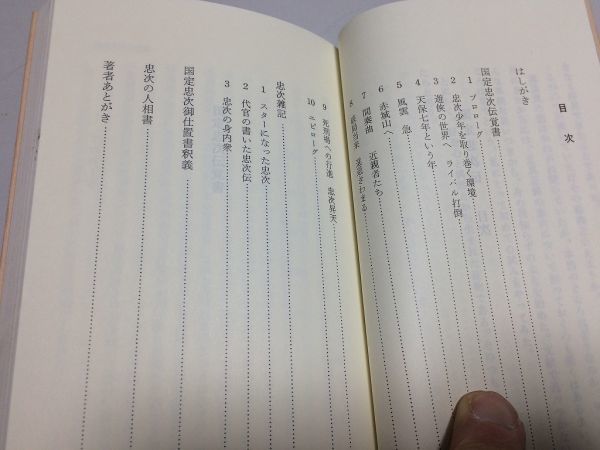 目次
はしがき
国定忠次伝覚書
1 プロローグ
2 忠次少年を取り巻く環境
3 遊侠の世界へ ライバル打倒
4 天保七年という年
5 風雲 急
6 赤城山へ
7 間奏曲 近親者たち
8 最期
9 処刑場への行進 忠次昇天
10 エピローグ
忠次雑記
1 スターになった忠次
2 代官の書いた忠次伝
3 忠次の身内衆
国定忠次御仕置書釈義
忠次の人相書
著者あとがき